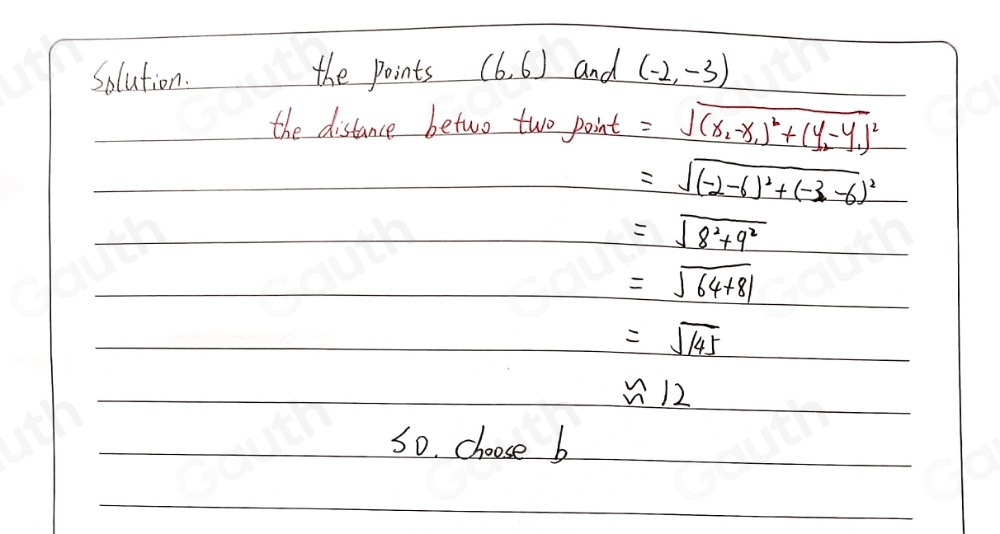 Solution. the points (6,6) and (-2,-3)
the distance betwo two point = √(x₂-x₁)²+(y₂-y₁)²
= √(-2-6)²+(-3-6)²
= √8²+9²
= √64+81
= √145
≈ 12
SO. choose b